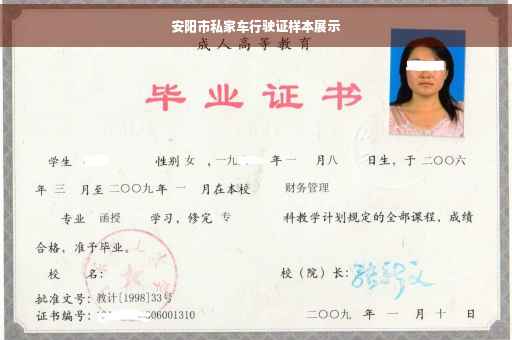 安阳市私家车行驶证样本展示
成人高等教育
毕业证书
学生 性别 女 ，一九 年 一 月 八 日生，于 二〇〇六
年 三 月至 二〇〇九 年 一 月在本校 财务管理
专业 函授 学习，修完 专 科教学计划规定的全部课程，成绩
合格，准予毕业。
校 名： 校（院）长：
批准文号：教计[1998]33号
证书编号： 06001310 二〇〇九 年 一 月 十 日